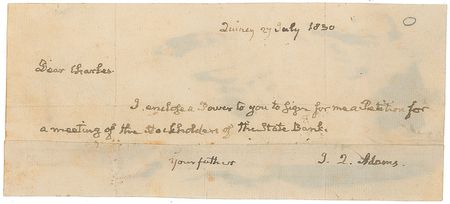 Quincy 27 July 1830
Dear Charles.
I enclose a Power to you to sign for me a Petition for
a meeting of the Stockholders of the State Bank.
Your father J. Q. Adams.